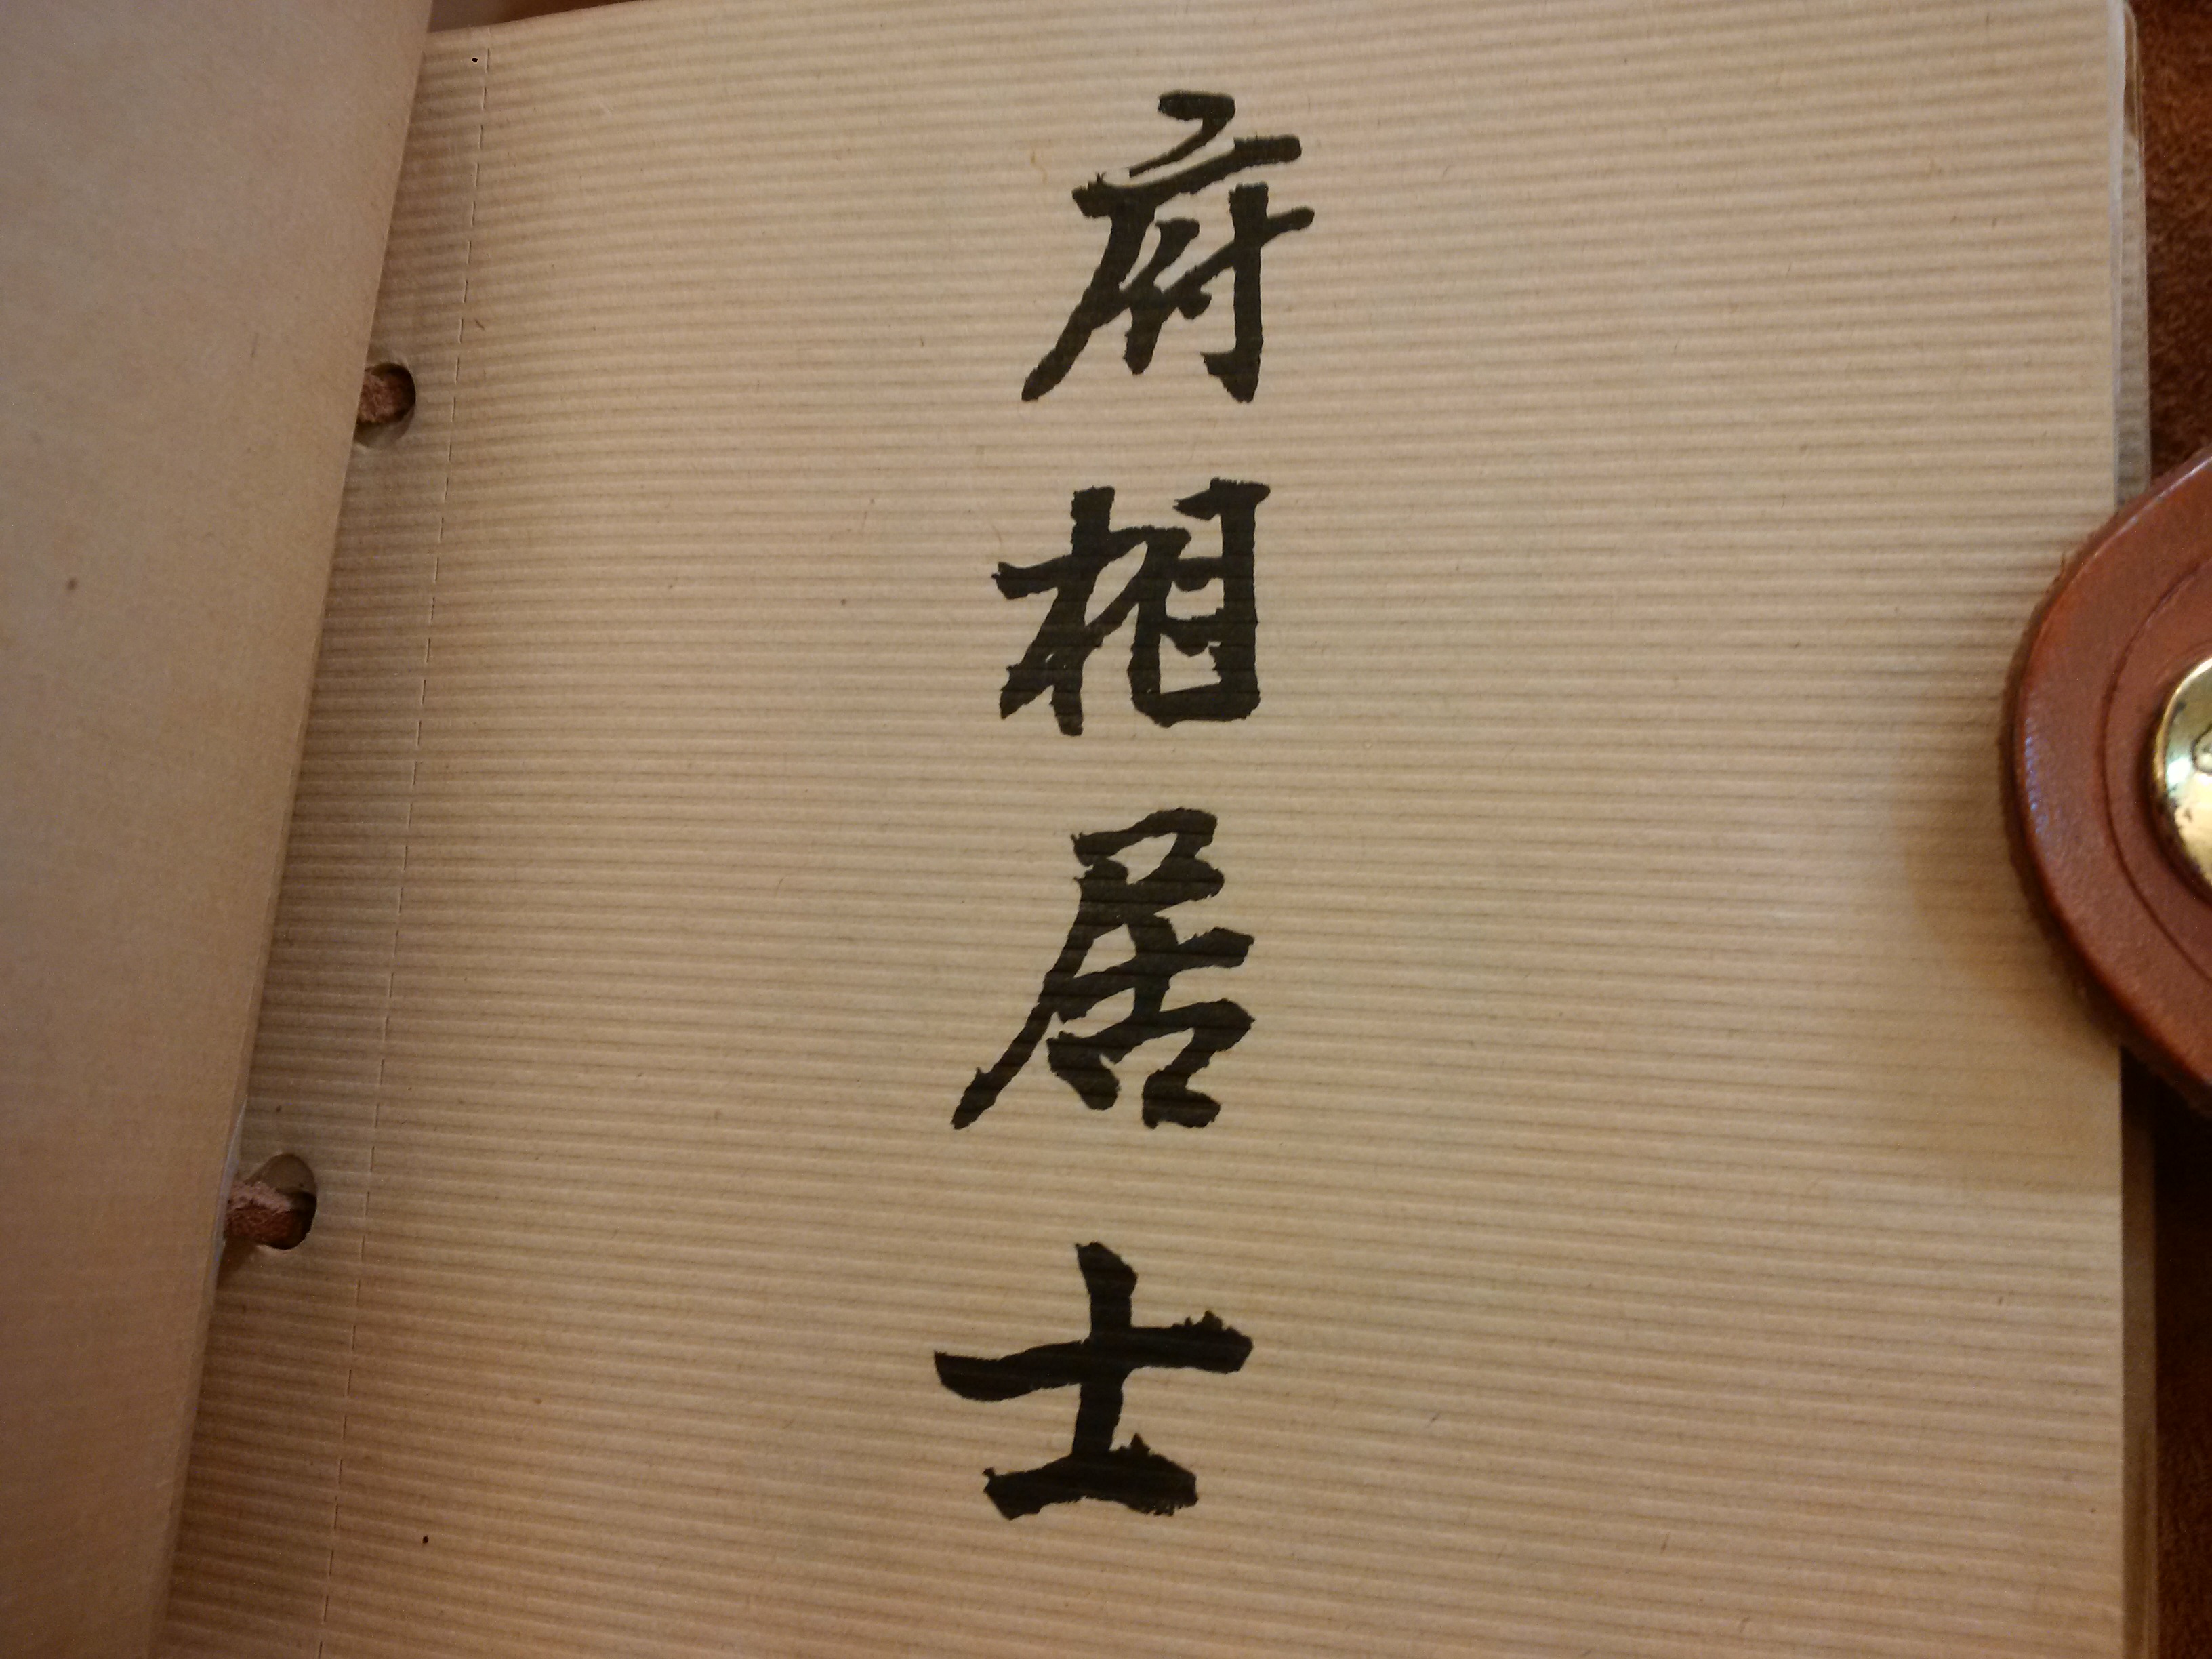 府相居士